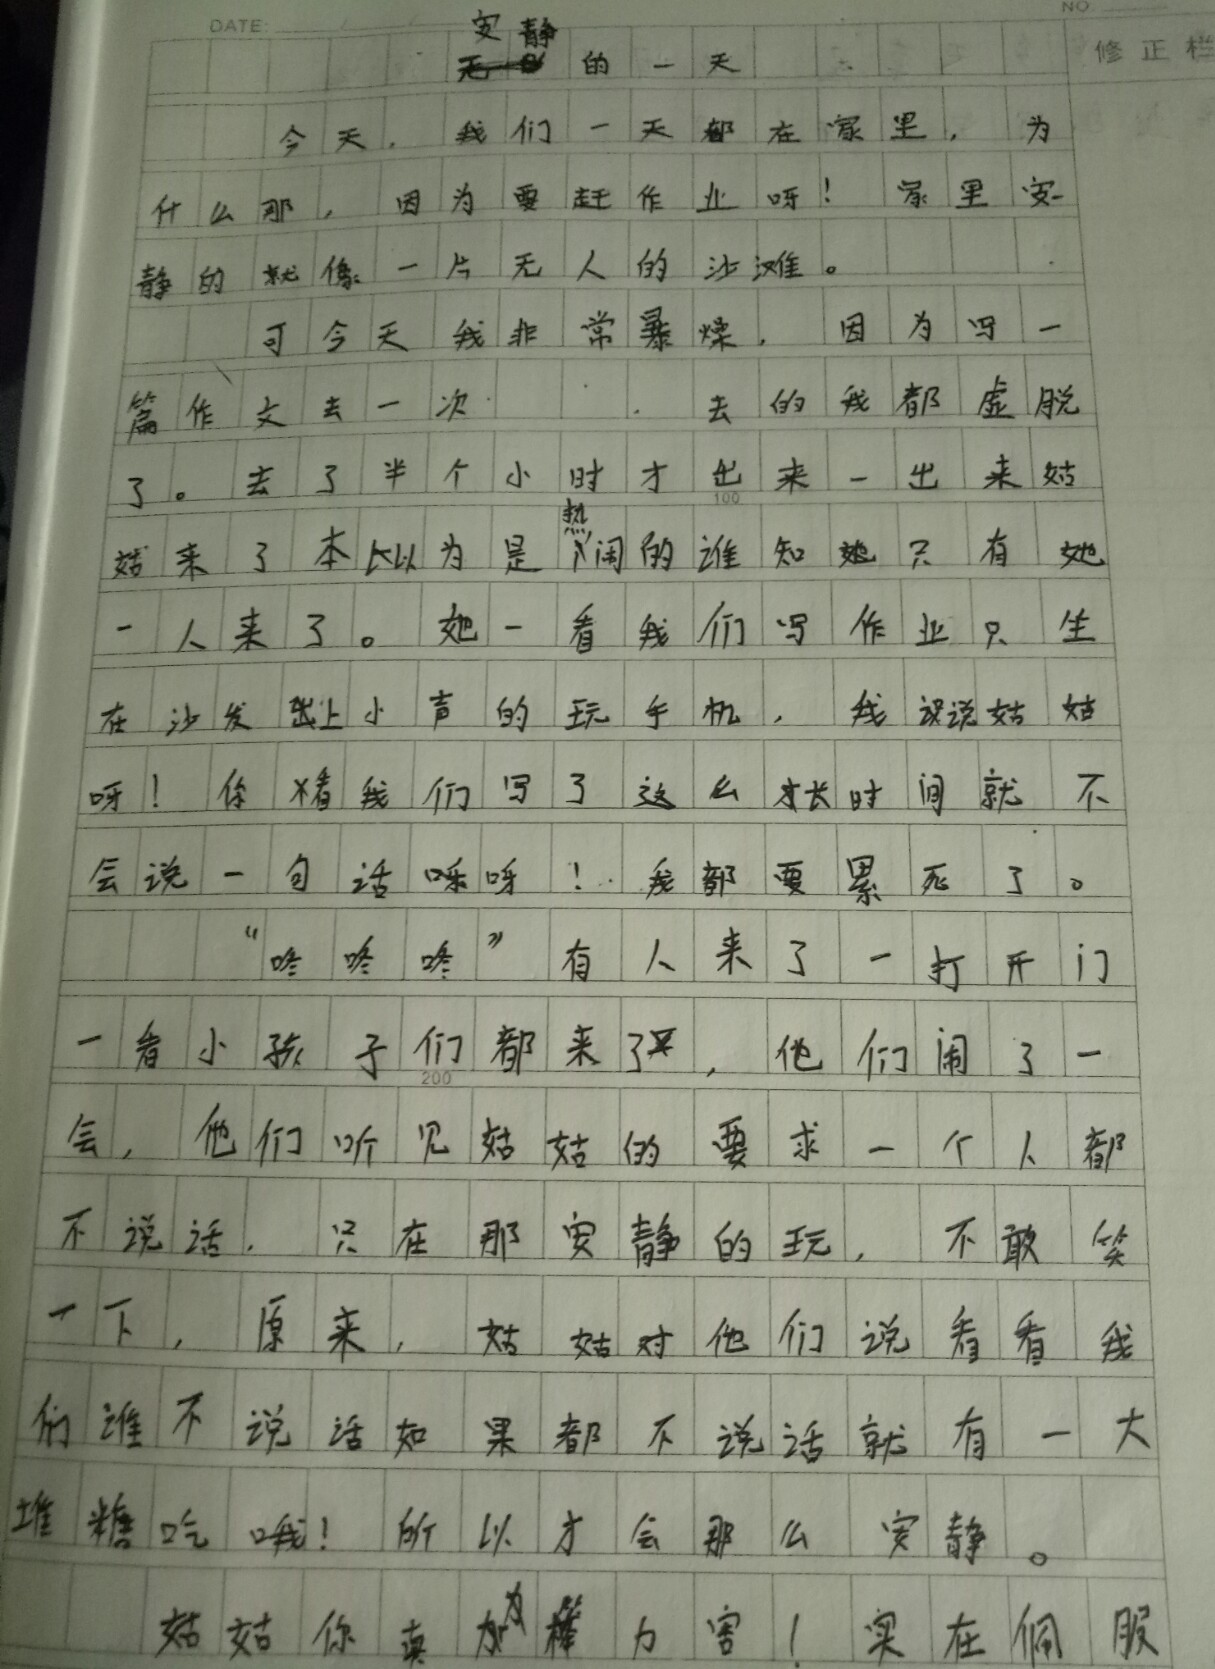 DATE:
NO
修正栏
安静的一天
今天,我们一天都在家里,为
什么那,因为要赶作业呀!家里安
静的就像一片无人的沙滩。
可今天我非常暴燥,因为写一
篇作文去一次 去的我都虚脱
了。去了半个小时才出来一出来姑
100
姑来了本以为是热闹的谁知她只有她
一人来了。她一看我们写作业只坐
在沙发上小声的玩手机,我说姑姑
呀!你看我们写了这么长时间就不
会说一句话呀!我都要累死了。
“咚咚咚”有人来了一打开门
一看小孩子们都来了,他们闹了一
200
会,他们听见姑姑的要求一个人都
不说话,只在那安静的玩,不敢笑
一下,原来,姑姑对他们说看看我
们谁不说话如果都不说话就有一大
堆糖吃哦!所以才会那么安静。
姑姑你真 力害!实在佩服